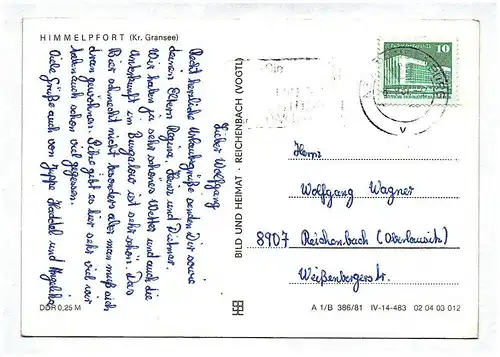 HIMMELPFORT (Kr. Gransee)
Lieber Wolfgang
Recht herzliche Urlaubsgrüße senden Dir sowie
deinen Eltern Regina, Heinz und Dietmar.
Wir haben ja sehr schönes Wetter und auch die
Unterkunft im Bungalow ist sehr schön. Das
Bier schmeckt nicht besonders aber man muß sich
dran gewöhnen. Fisch gibt es hier sehr viel wir
haben auch schon viel gegessen.
Viele Grüße auch von
und
DDR 0,25 M
BILD UND HEIMAT · REICHENBACH (VOGTL)
10
Herrn
Wolfgang Wagner
8907 Reichenbach (Oberlausitz)
Weißenbergerstr.
A 1/B 386/81 IV-14-483 02 04 03 012